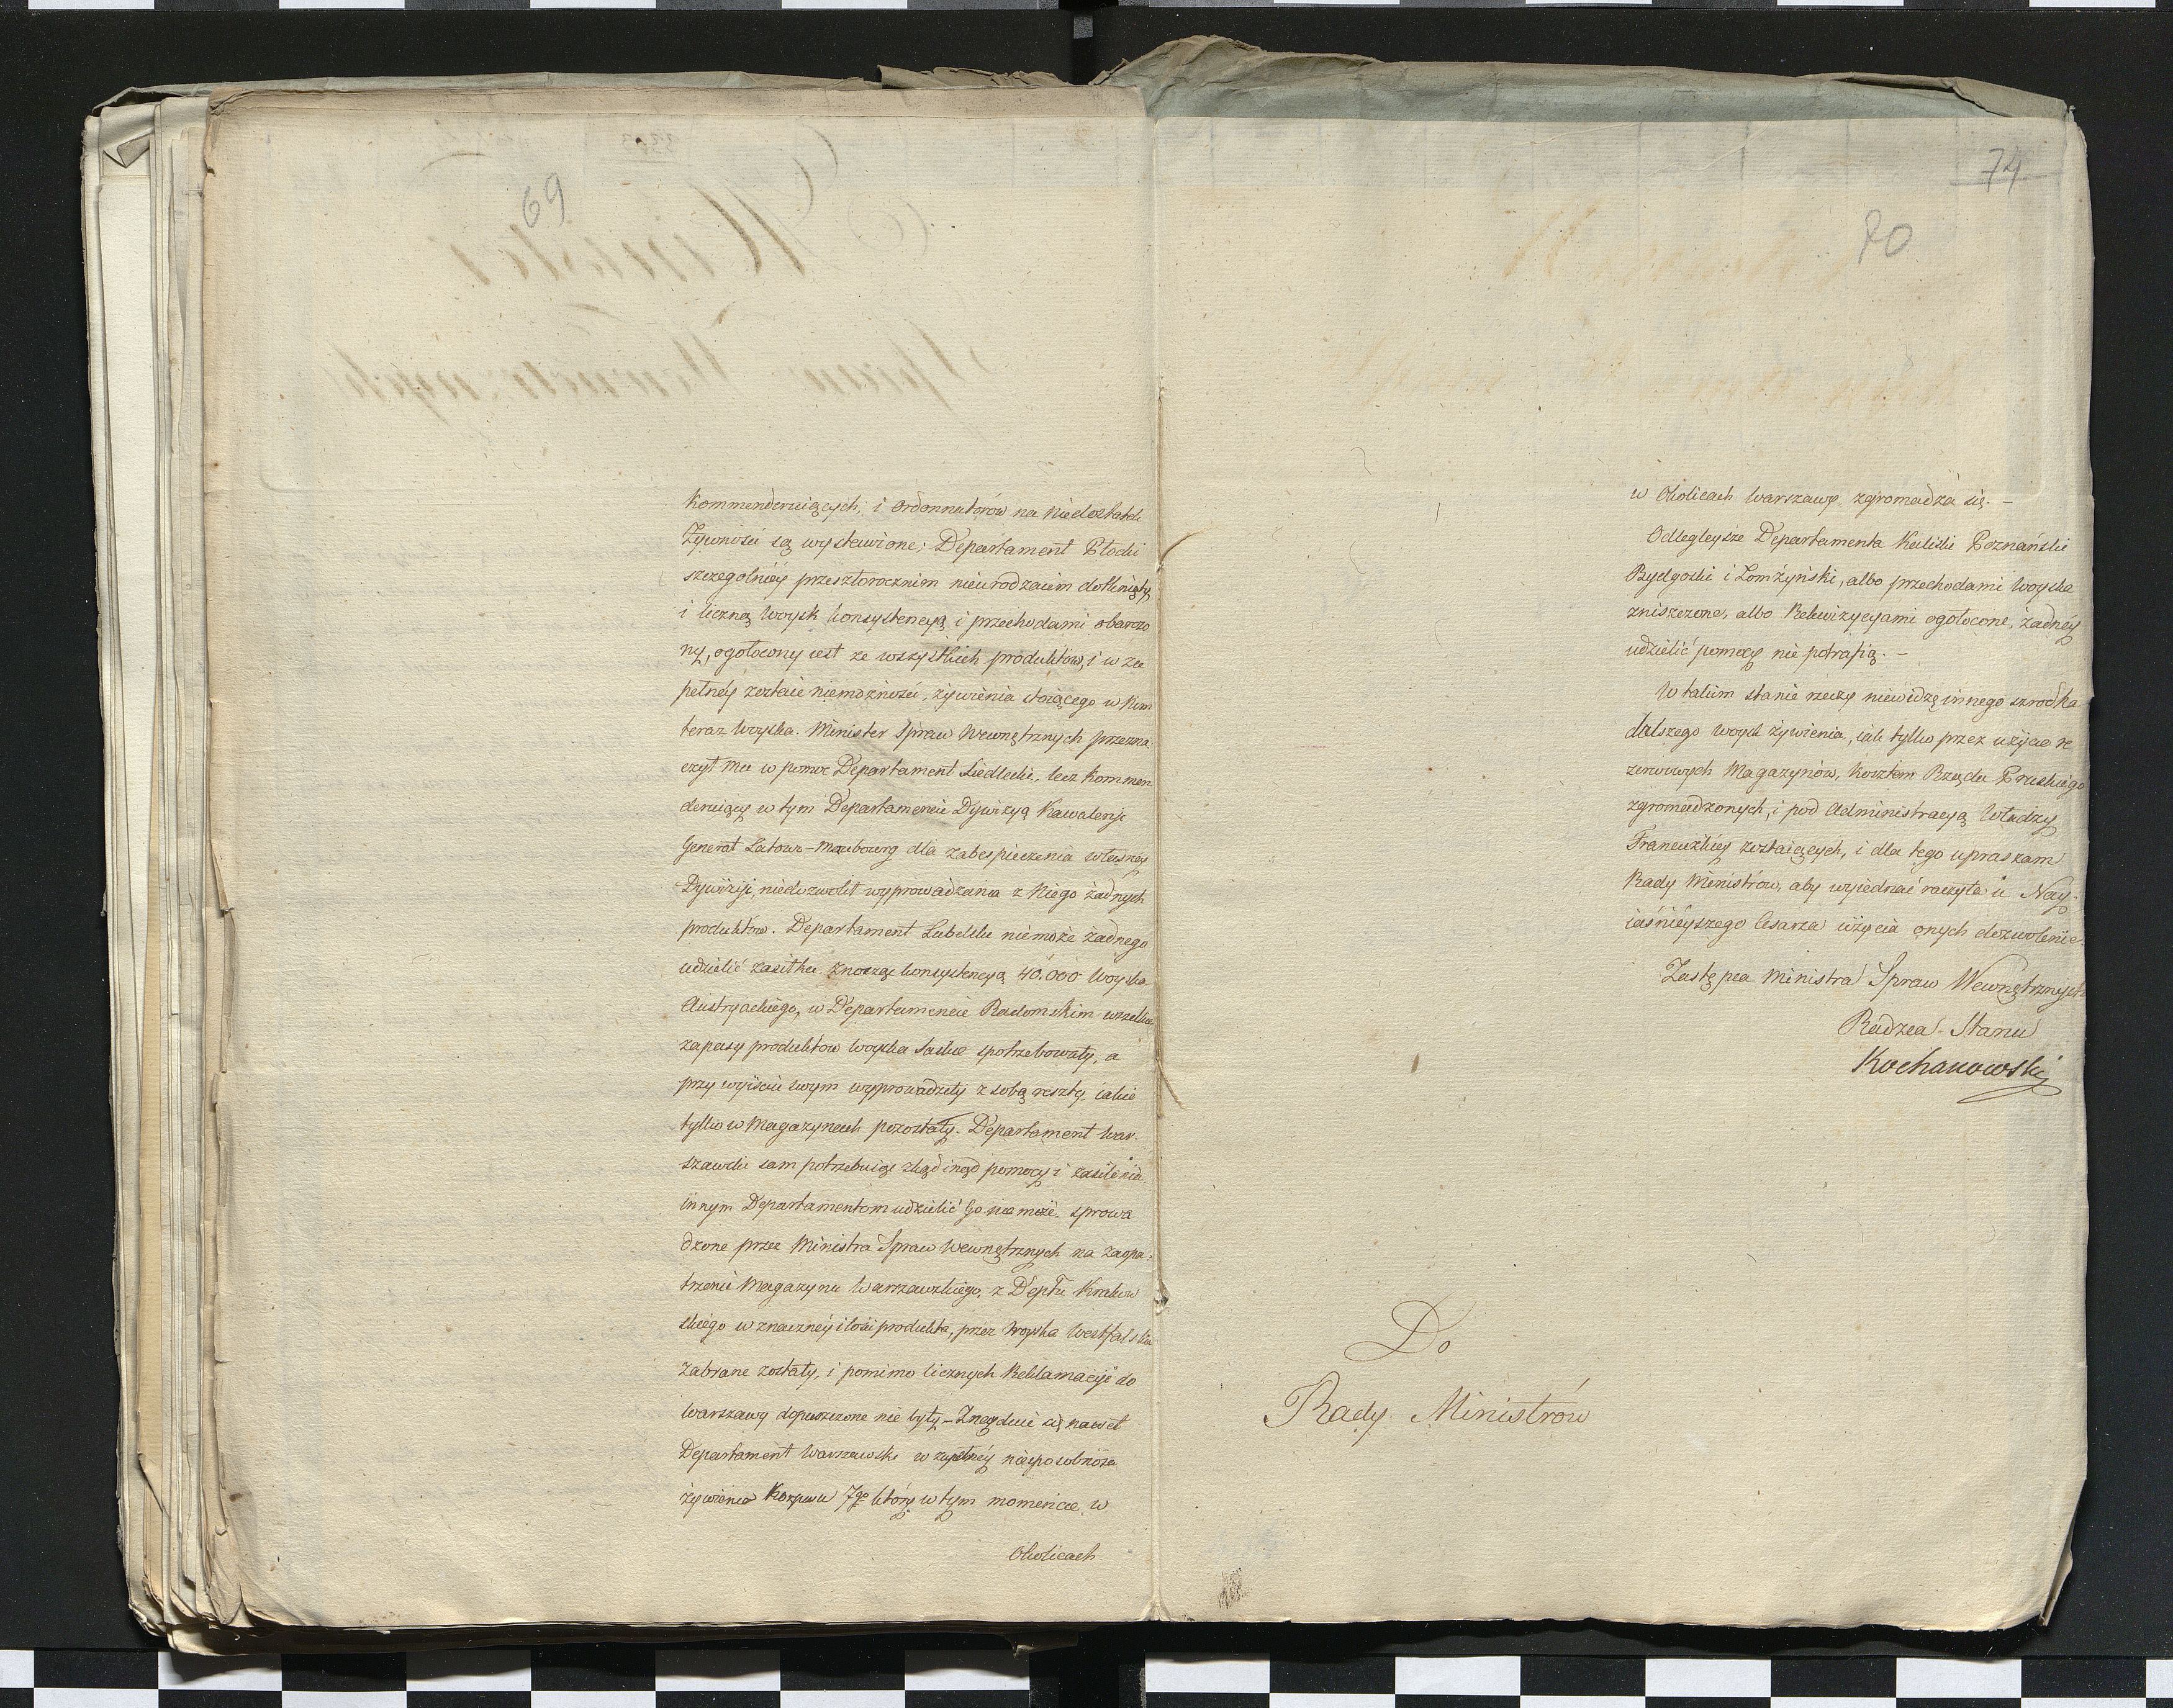 69
kommenderuiących, i ordonnatorów na niedostatek
Żywności są wystawione; Departament Płocki
szczegolniey przeszłorocznim nieurodzaiem dotknięty
i liczną Woysk konsystencyą i przechodami obarczo
ny, ogołocony iest ze wszystkich produktów, i w zu
pełney zostaie niemożności, żywienia stoiącego w Nim
teraz Woyska. Minister Spraw Wewnętrznych przezna
czył mu w pomoc Departament Siedlecki, lecz Kommen
deruiący w tym Departamencie Dywizyą Kawaleryi
Generał Latour-Maubourg dla zabespieczenia własney
Dywizyi, niedozwolił wyprowadzania z Niego żadnych
produktów. Departament Lubelski niemoże żadnego
udzielić zasiłku znosząc konsystencyą 40.000 Woyska
Austryackiego, w Departamencie Radomskim wszelkie
zapasy produktow Woyska Saskie spotrzebowały, a
przy wyiściu swym wyprowadziły z sobą resztę iakie
tylko w Magazynach pozostały. Departament War.
szawski sam potrzebuiąc zkąd inąd pomocy i zasilenia
innym Departamentom udzielić Go nie może. sprowa
dzone przez Ministra Spraw Wewnętrznych na zaopa.
trzenie Magazynu Warszawskiego, z Deptu Krakow
skiego w znaczney ilości produkta, przez Woyska Westfalskie
zabrane zostały, i pomimo licznych Reklamacyi do
Warszawy dopuszczone nie były – Znayduie się nawet
Departament Warszawski w zupełney niesposobności
żywienia Korpusu 7go który w tym momencie w
Okolicach
74
70
w Okolicach Warszawy zgromadza się. –
Odlegleysze Departamenta Kaliski Poznański
Bydgoski i Łomżyński, albo przechodami Woyska
zniszczone, albo Rekwizycyami ogołocone, żadney
udzielić pomocy nie potrafią. –
W takim stanie rzeczy niewidzę innego szrodka
dalszego Woysk żywienia, iak tylko przez użycie re
zerwowych Magazynów, kosztem Rządu Pruskiego
zgromadzonych, i pod Administracyą Władzy
Francuzkiey zostaiących, i dla tego upraszam
Rady Ministrów, aby wyiednać raczyła u Nay.
iaśnieyszego Cesarza użycia onych dozwolenie.
Zastępca Ministra Spraw Wewnętrznych
Radzca Stanu
Kochanowski
Do
Rady Ministrów